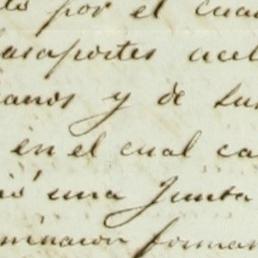 por el cua
asaportes acel
anos y de su
en el cual ca
una Junta
minacion forma